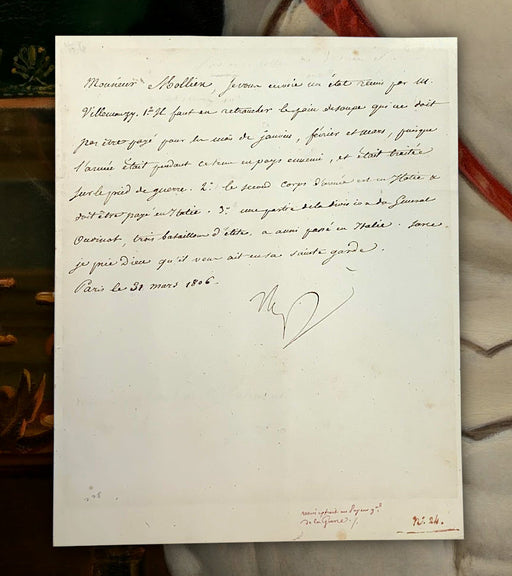 Monsieur Mollien, je vous envoie un état remis par M.
Villemanzy. 1º Il faut en retrancher le pain de soupe qui ne doit
pas être payé pour les mois de janvier, février et mars, puisque
l'armée était pendant ce tems en pays ennemi, et était traitée
sur le pied de guerre. 2º le second corps d'armée est en Italie &
doit être payé en Italie. 3º une partie de la division du General
Oudinot, trois bataillons d'élite, a aussi passé en Italie. Sur ce
je prie Dieu qu'il vous ait en sa sainte garde.
Paris le 31 mars 1806.
Nap
remis extrait au Payeur gal
de la Guerre ./.
Nº. 24.